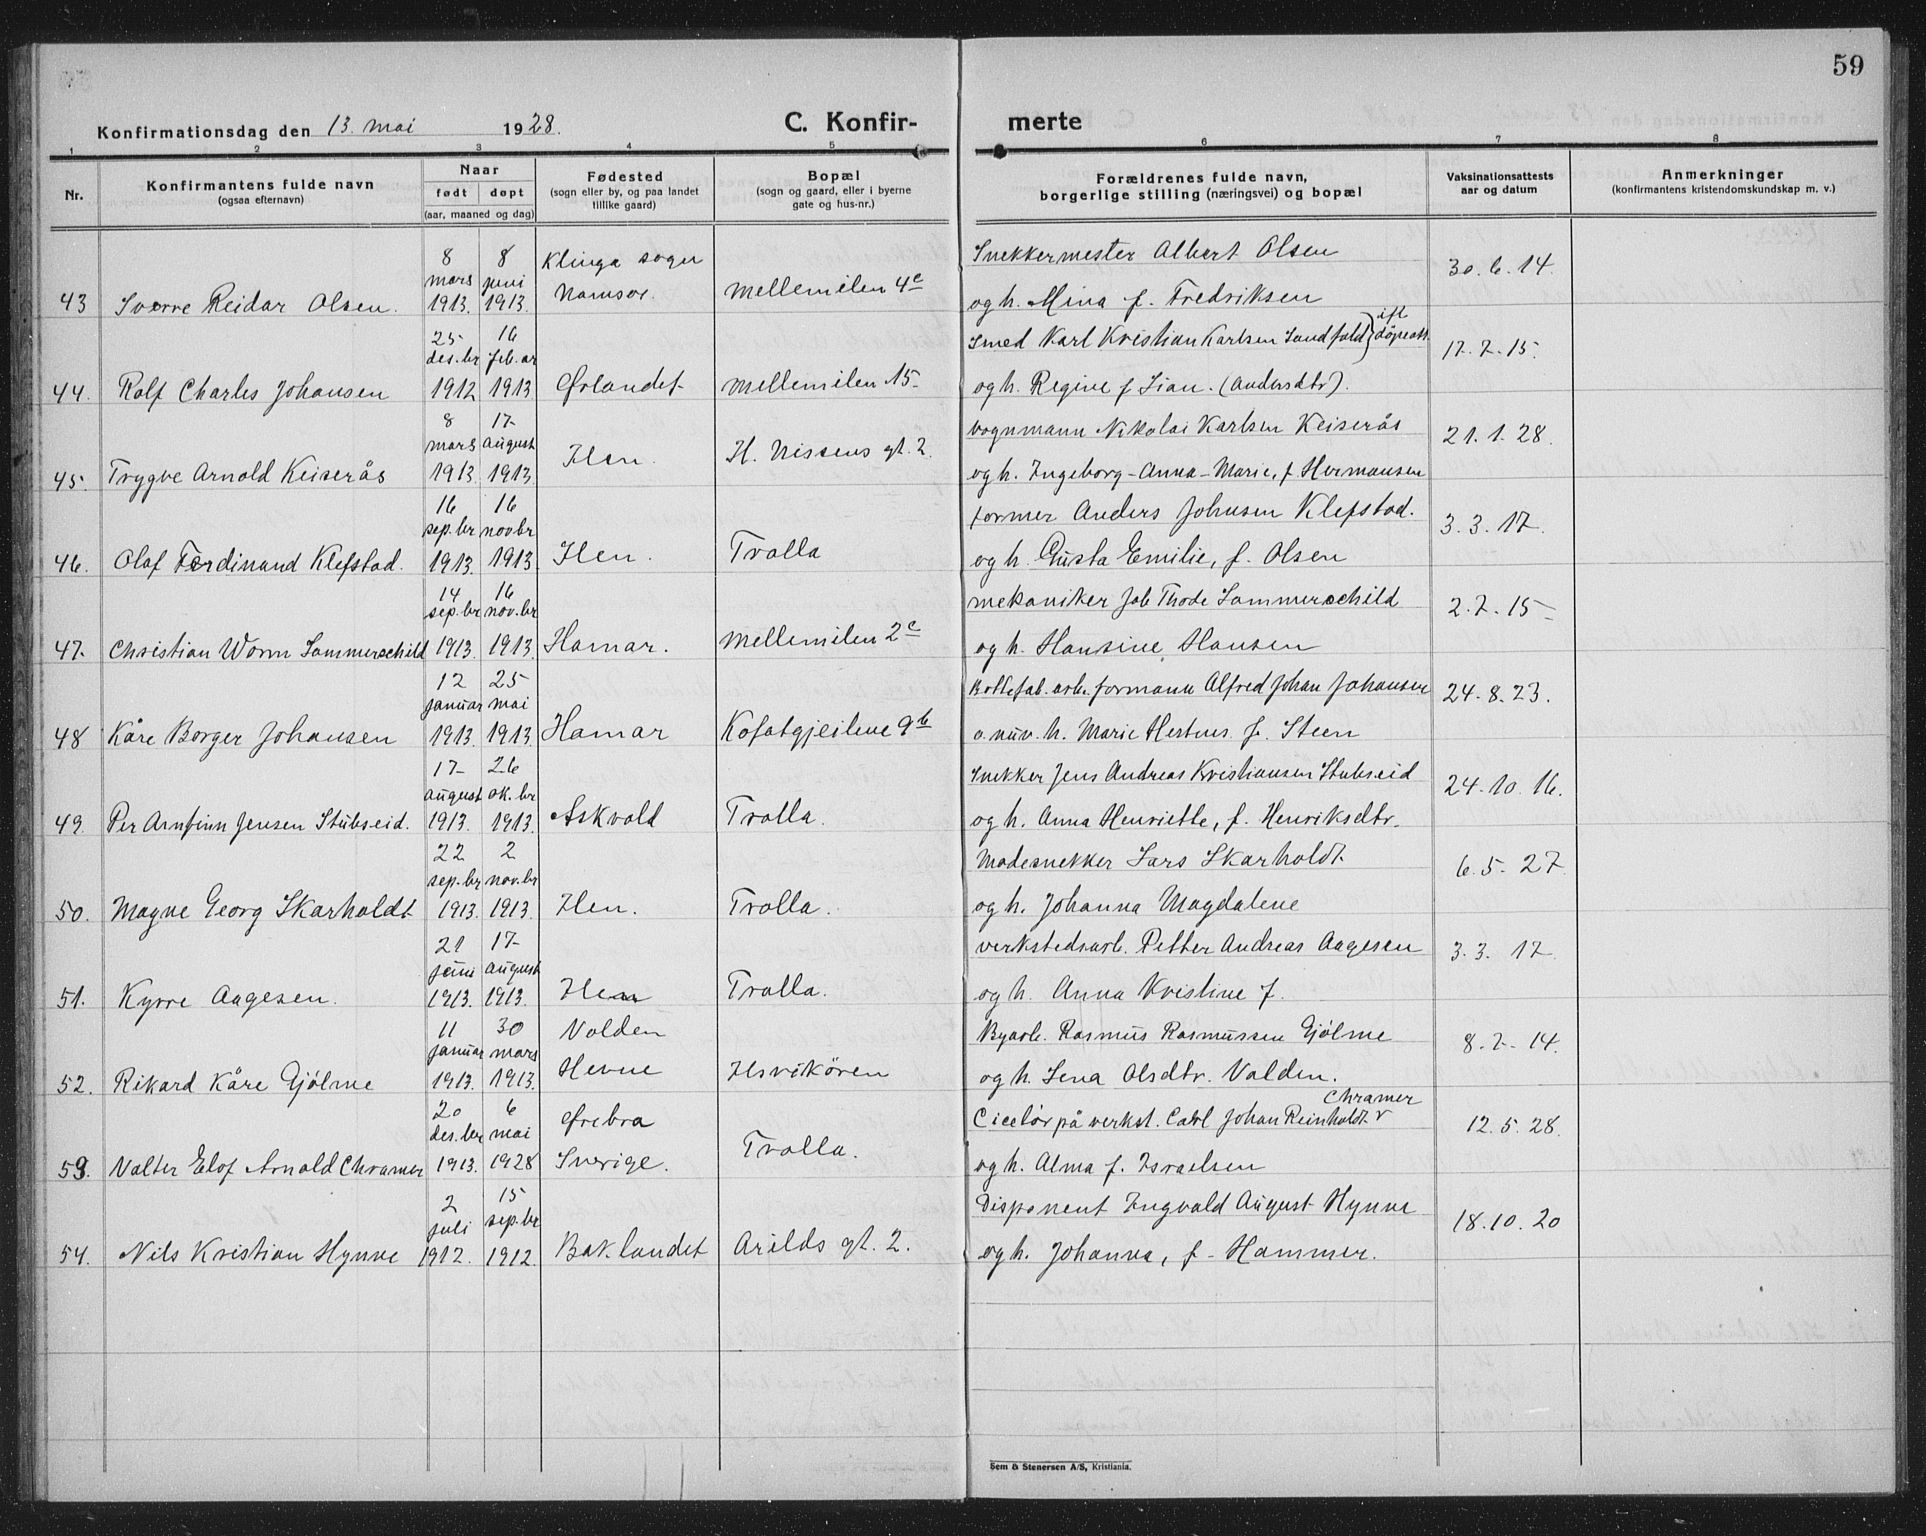 59
Konfirmationsdag den 13. mai 1928. C. Konfir- merte
1 2 3 4 5 6 7 8
Nr. Konfirmantens fulde navn (ogsaa efternavn) Naar født døpt (aar, maaned og dag) Fødested (sogn eller by, og paa landet tillike gaard) Bopæl (sogn og gaard, eller i byerne gate og hus-nr.) Forældrenes fulde navn, borgerlige stilling (næringsvei) og bopæl Vaksinationsattests aar og datum Anmerkninger (konfirmantens kristendomskundskap m. v.)
8 8 Klinga sogn Snekkermester Albert Olsen
mars juni 30.6.14.
43 Sverre Reidar Olsen. 1913. 1913. Namsos. Mellemilen 4c og h. Mina f. Fredriksen
25 16 Smed Karl Kristian Karlsen Sandfald } ift døpeatt.
des.br feb.ar 17.7.15.
44. Rolf Charles Johansen 1912 1913. Ørlandet Mellemilen 15 og h. Regine f Sian. (Andersdtr).
8 17 vognmann Nikolai Karlsen Keiserås
mars august Ilen. H. Nissens gt. 2. 21.1.28.
45. Trygve Arnold Keiserås 1913. 1913. og h. Ingeborg-Anna-Marie, f Hermansen
16 16 former Anders Johnsen Klefstad.
sep.br novbr 3.3.17.
46. Olaf Ferdinand Klefstad. 1913. 1913. Ilen. Trolla og h. Gusta Emilie, f. Olsen
14 16 mekaniker Job Thode Sommerschild
sep.br nov.br 2.7.15
47. Christian Worm Sommerschild 1913. 1913. Hamar. Mellemilen 2c og h. Hansine Hansen
12 25 Boltefab.arb.formann Alfred Johan Johansen
januar mai 24.8.23.
48 Kåre Borger Johansen 1913. 1913. Hamar Kofotgjeilene 9b o. nuv. h. Marie Hestnes f. Steen
17 26 Snekker Jens Andreas Kristiansen Stubseid
august ok.br 24.10.16.
49. Per Arnfinn Jensen Stubseid. 1913. 1913. Askvold Trolla. og h. Anna Henriette, f. Henriksdtr.
22 2 Modesnekker Lars Skarholdt
sep.br nov.br 6.5.27
50. Magne Georg Skarholdt 1913. 1913. Ilen. Trolla. og h. Johanna Magdalene
21 17 verkstedsarb. Petter Andreas Aagesen
juni august 3.3.17.
51. Kyrre Aagesen. 1913. 1913. Ilen Trolla. og h. Anna Kristine f.
11 30 Valden Byarb. Rasmus Rasmussen Gjølme
januar mars 8.7.14.
52. Rikard Kåre Gjølme 1913. 1913. Hevne Ilsvikören og h. Lena Olsdtr. Valden.
Chramer
20 6 Ørebro Ciceløs på verkst. Carl Johan Reinholdt v
des.ber mai 12.5.28.
53. Valter Elof Arnold Chramer 1913. 1928 Sverige. Trolla. og h. Alma f. Israelsen
2 15 Disponent Ingvald August Hynne
juli sep.br 18.10.20
54. Nils Kristian Hynne 1912. 1912. Baklandet Arilds gt. 2. og h. Johanna, f. Hammer.
Sem & Stenersen A/S, Kristiania.